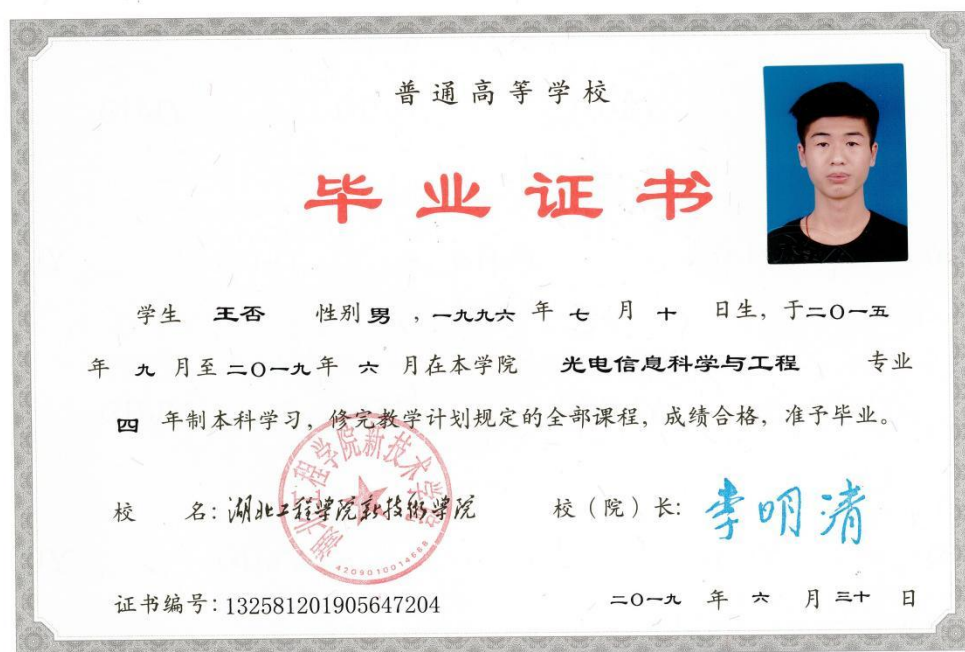 普通高等学校
毕业证书
学生 王否 性别 男 ，一九九六 年 七 月 十 日生，于二〇一五
年 九 月至二〇一九年 六 月在本学院 光电信息科学与工程 专业
四 年制本科学习，修完教学计划规定的全部课程，成绩合格，准予毕业。
湖北工程学院新技术学院
4209010014668
校 名：湖北工程学院新技術学院 校（院）长：李明清
证书编号：132581201905647204 二〇一九 年 六 月 三十 日